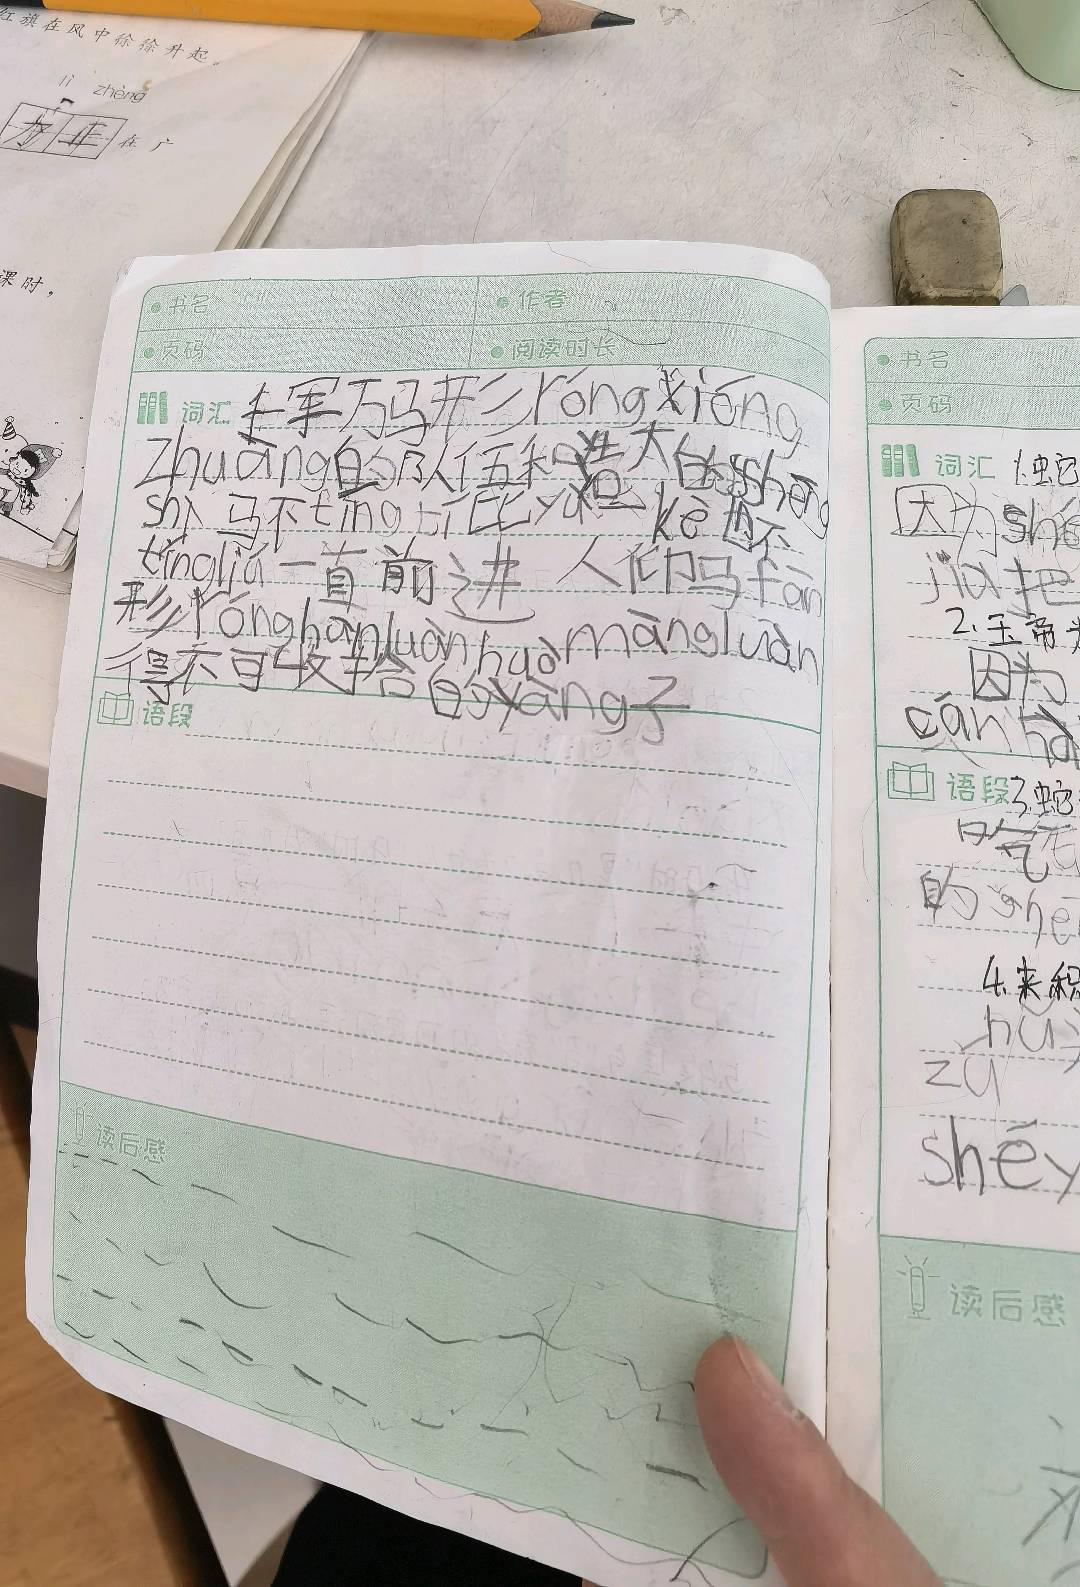 红旗在风中徐徐升起。
lì zhèng
在广
课时，
书名 作者
页码 阅读时长
词汇 千军万马形róng xióng
zhuàng的队伍和浩大的shēng
shì 马不tíng tí 比yù 一kè 也不
tíngliú 一直前进 人仰马fān
形róng hànluàn huò mángluàn
得不可收拾的yàng子
语段
读后感
书名
页码
词汇 1.蛇
因为shé
把
2.
因为
语段 3.蛇
的 shé
4.
zú
shé
读后感